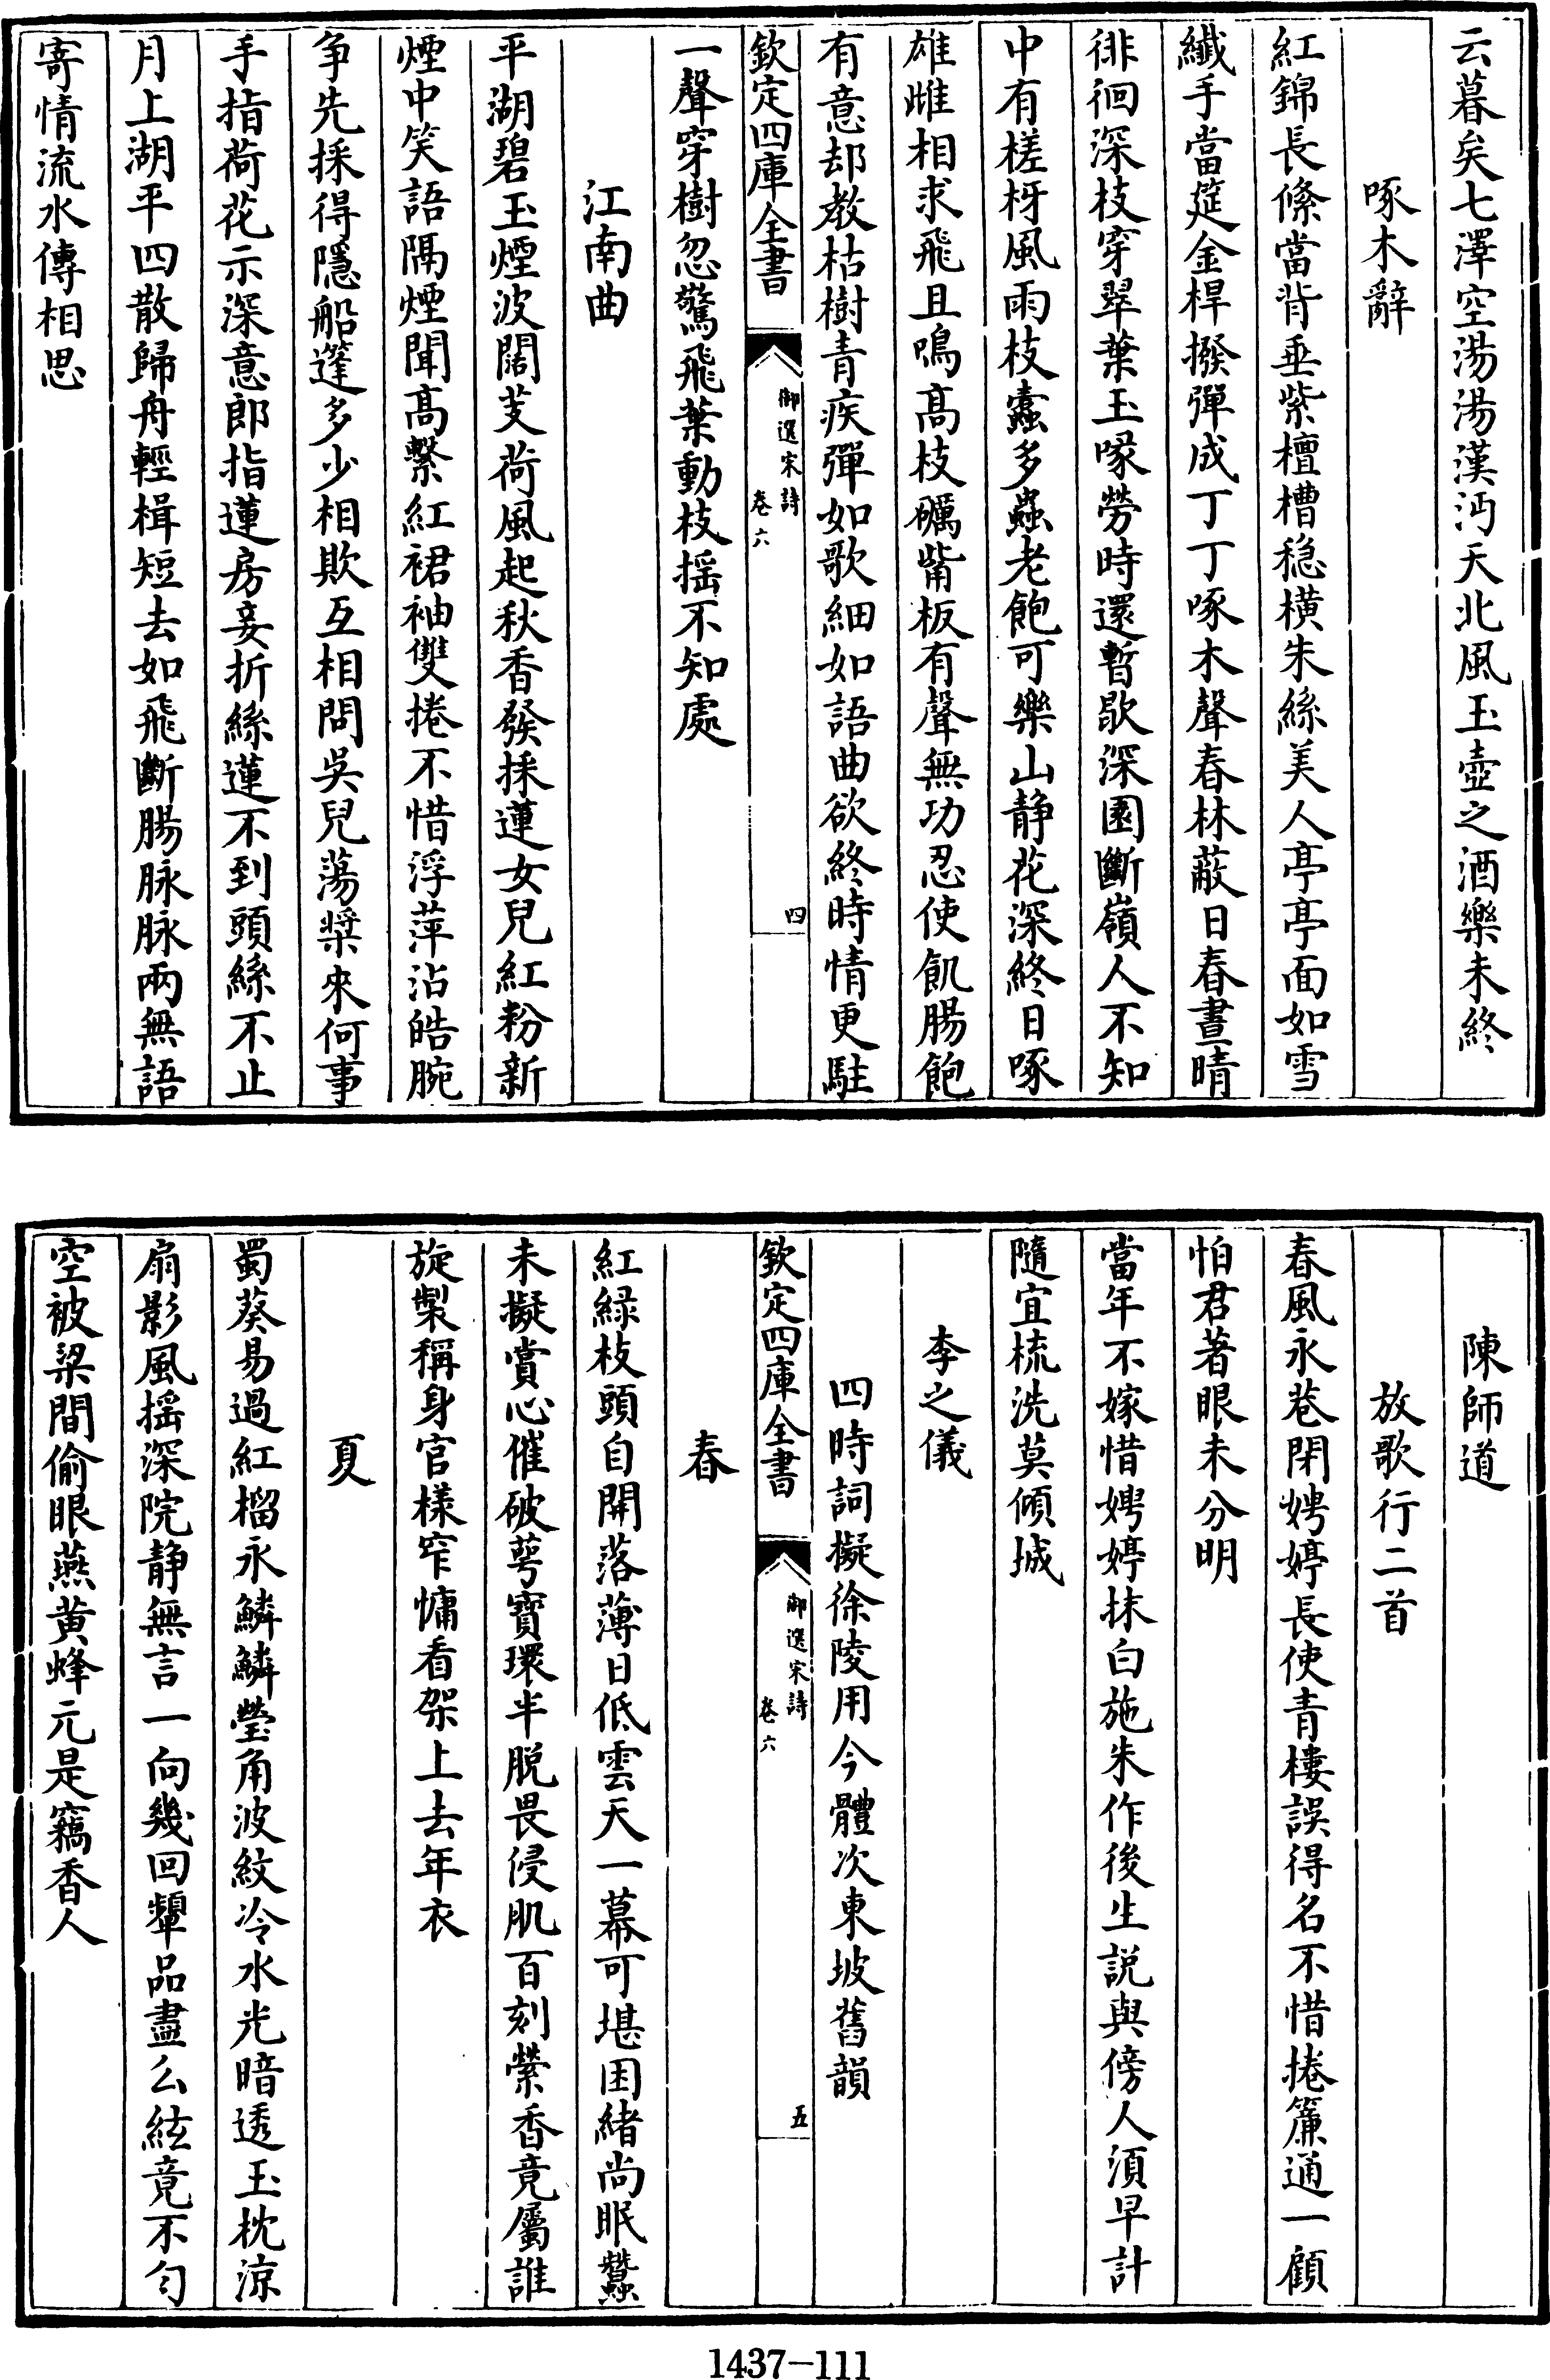 云暮矣七澤空湯湯漢沔天北風玉壺之酒樂未終
啄木辭
紅錦長絛當背垂紫檀槽穩橫朱絲美人亭亭面如雪
纖手當筵金桿撥彈成丁丁啄木聲春林蔽日春晝晴
徘徊深枝穿翠葉玉喙勞時還暫歇深園斷嶺人不知
中有槎枒風雨枝蠹多蟲老飽可樂山静花深終日啄
雄雌相求飛且鳴髙枝礪觜板有聲無功忍使飢腸飽
有意却教枯樹青疾彈如歌細如語曲欲終時情更駐
欽定四庫全書
御選宋詩
卷六
四
一聲穿樹忽驚飛葉動枝摇不知處
江南曲
平湖碧玉煙波闊芰荷風起秋香發採蓮女兒紅粉新
煙中笑語隔煙聞髙繫紅裙袖雙捲不惜浮萍沾皓腕
争先採得隱船篷多少相欺互相問吳兒蕩槳來何事
手指荷花示深意郎指蓮房妾折絲蓮不到頭絲不止
月上湖平四散歸舟輕楫短去如飛斷腸脉脉兩無語
寄情流水傳相思
陳師道
放歌行二首
春風永巷閉娉婷長使青樓誤得名不惜捲簾通一顧
怕君著眼未分明
當年不嫁惜娉婷抹白施朱作後生説與傍人須早計
隨宜梳洗莫傾城
李之儀
四時詞擬徐陵用今體次東坡舊韻
欽定四庫全書
御選宋詩
卷六
五
春
紅緑枝頭自開落薄日低雲天一幕可堪困緒尚眠蠶
未擬賞心催破萼寶環半脱畏侵肌百刻縈香竟屬誰
旋製稱身官樣窄慵看架上去年衣
夏
蜀葵易過紅榴永鱗鱗瑩角波紋冷水光暗透玉枕涼
扇影風摇深院静無言一向幾回顰品盡么絃竟不匀
空被梁間偷眼燕黄蜂元是竊香人
1437-111